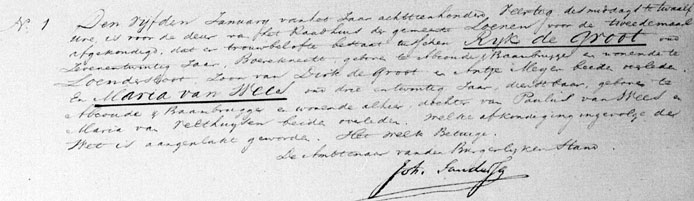 No. 1 Den vyfden January van het Jaar achttienhonderd Veertig des middags te twaalf
ure, is voor de deur van het Raadhuis der gemeente Loenen voor de tweedemaal
afgekondigd, dat er trouwbelofte bestaat tusschen Ryk de Groot oud
zevenentwintig Jaar, Boereknecht, geboren te Abcoude Baambrugge en wonende te
Loendersloot Zoon van Dirk de Groot en Antje Meyer beide overleden.
En Maria van Wees oud drie entwintig Jaar, dienstbaar, geboren te
Abcoude Baambrugge en wonende alhier, dochter van Paulus van Wees en
Maria van Velthuysen beiden overleden. Welke afkondiging ingevolge de
Wet is aangeplakt geworden. Het welk Betuige.
De Ambtenaar van den Burgerlyken Stand.
Joh.